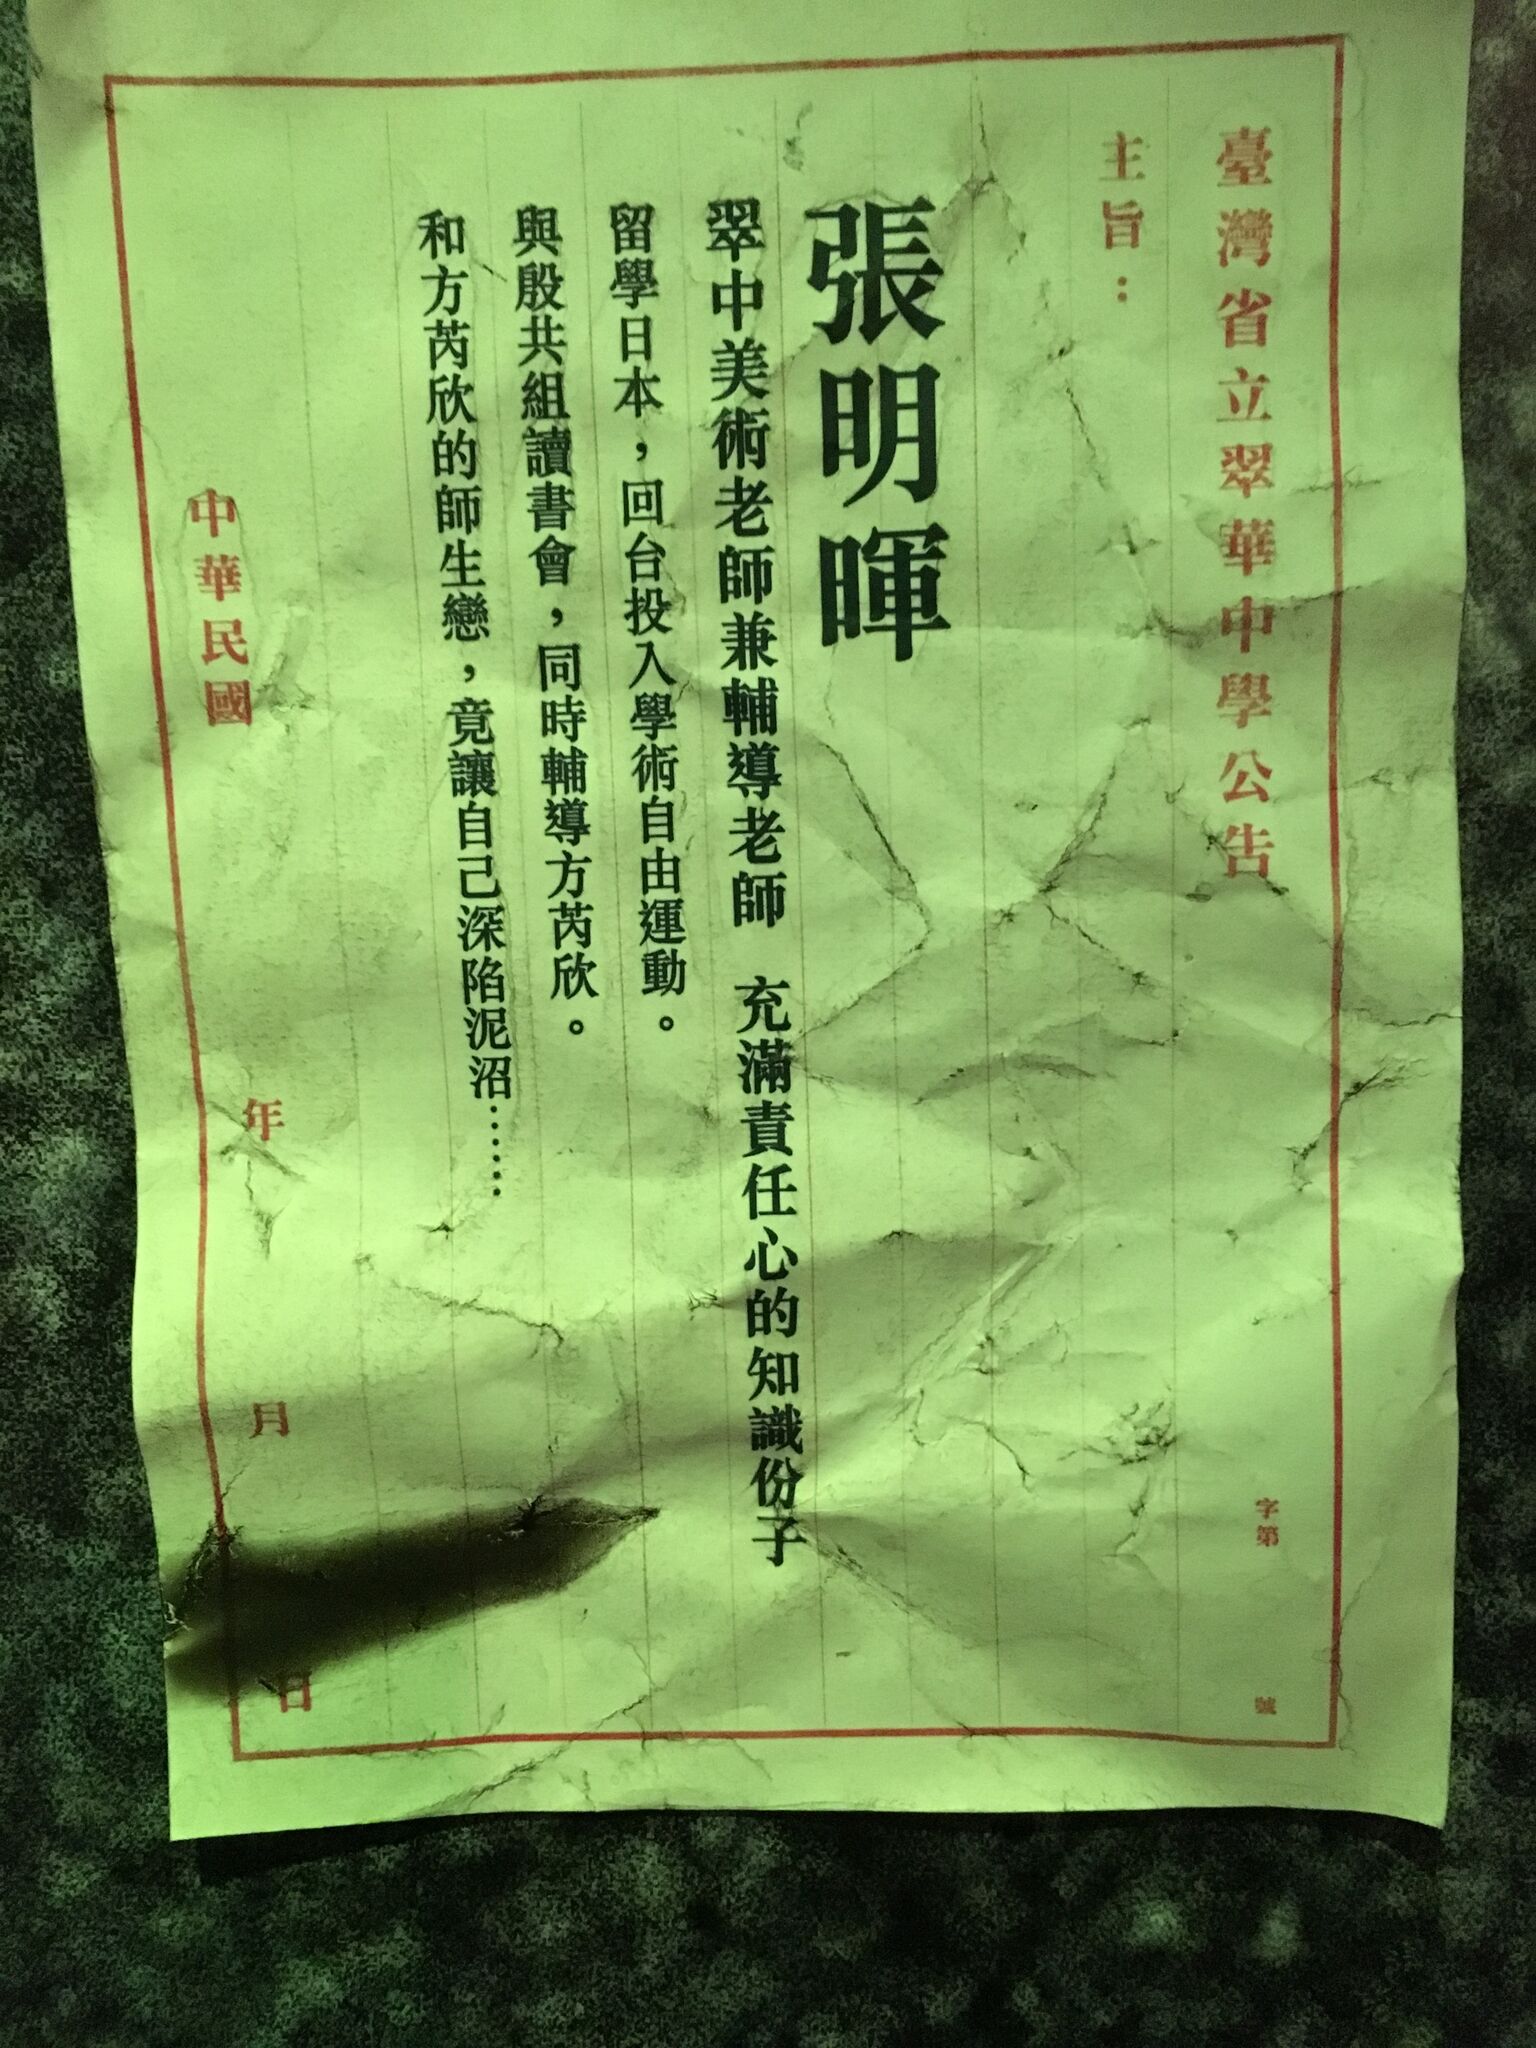 臺灣省立翠華中學公告
字第
號
主旨：
張明暉
翠中美術老師兼輔導老師 充滿責任心的知識份子
留學日本，回台投入學術自由運動。
與殷共組讀書會，同時輔導方芮欣。
和方芮欣的師生戀，竟讓自己深陷泥沼……
中華民國 年 月 日